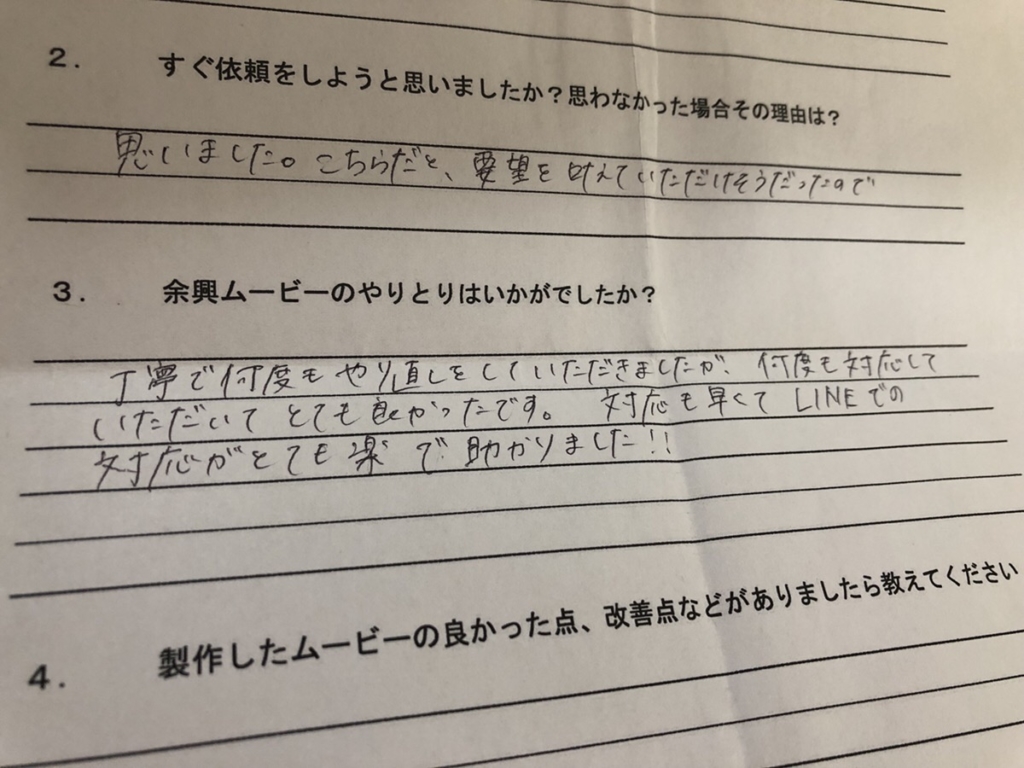 2. すぐ依頼をしようと思いましたか？思わなかった場合その理由は？
思いました。こちらだと、要望を叶えていただけそうだったので
3. 余興ムービーのやりとりはいかがでしたか？
丁寧で何度もやり直しをしていただきましたが、何度も対応して
いただいてとても良かったです。 対応も早くてLINEでの
対応がとても楽で助かりました!!
4. 製作したムービーの良かった点、改善点などがありましたら教えてください